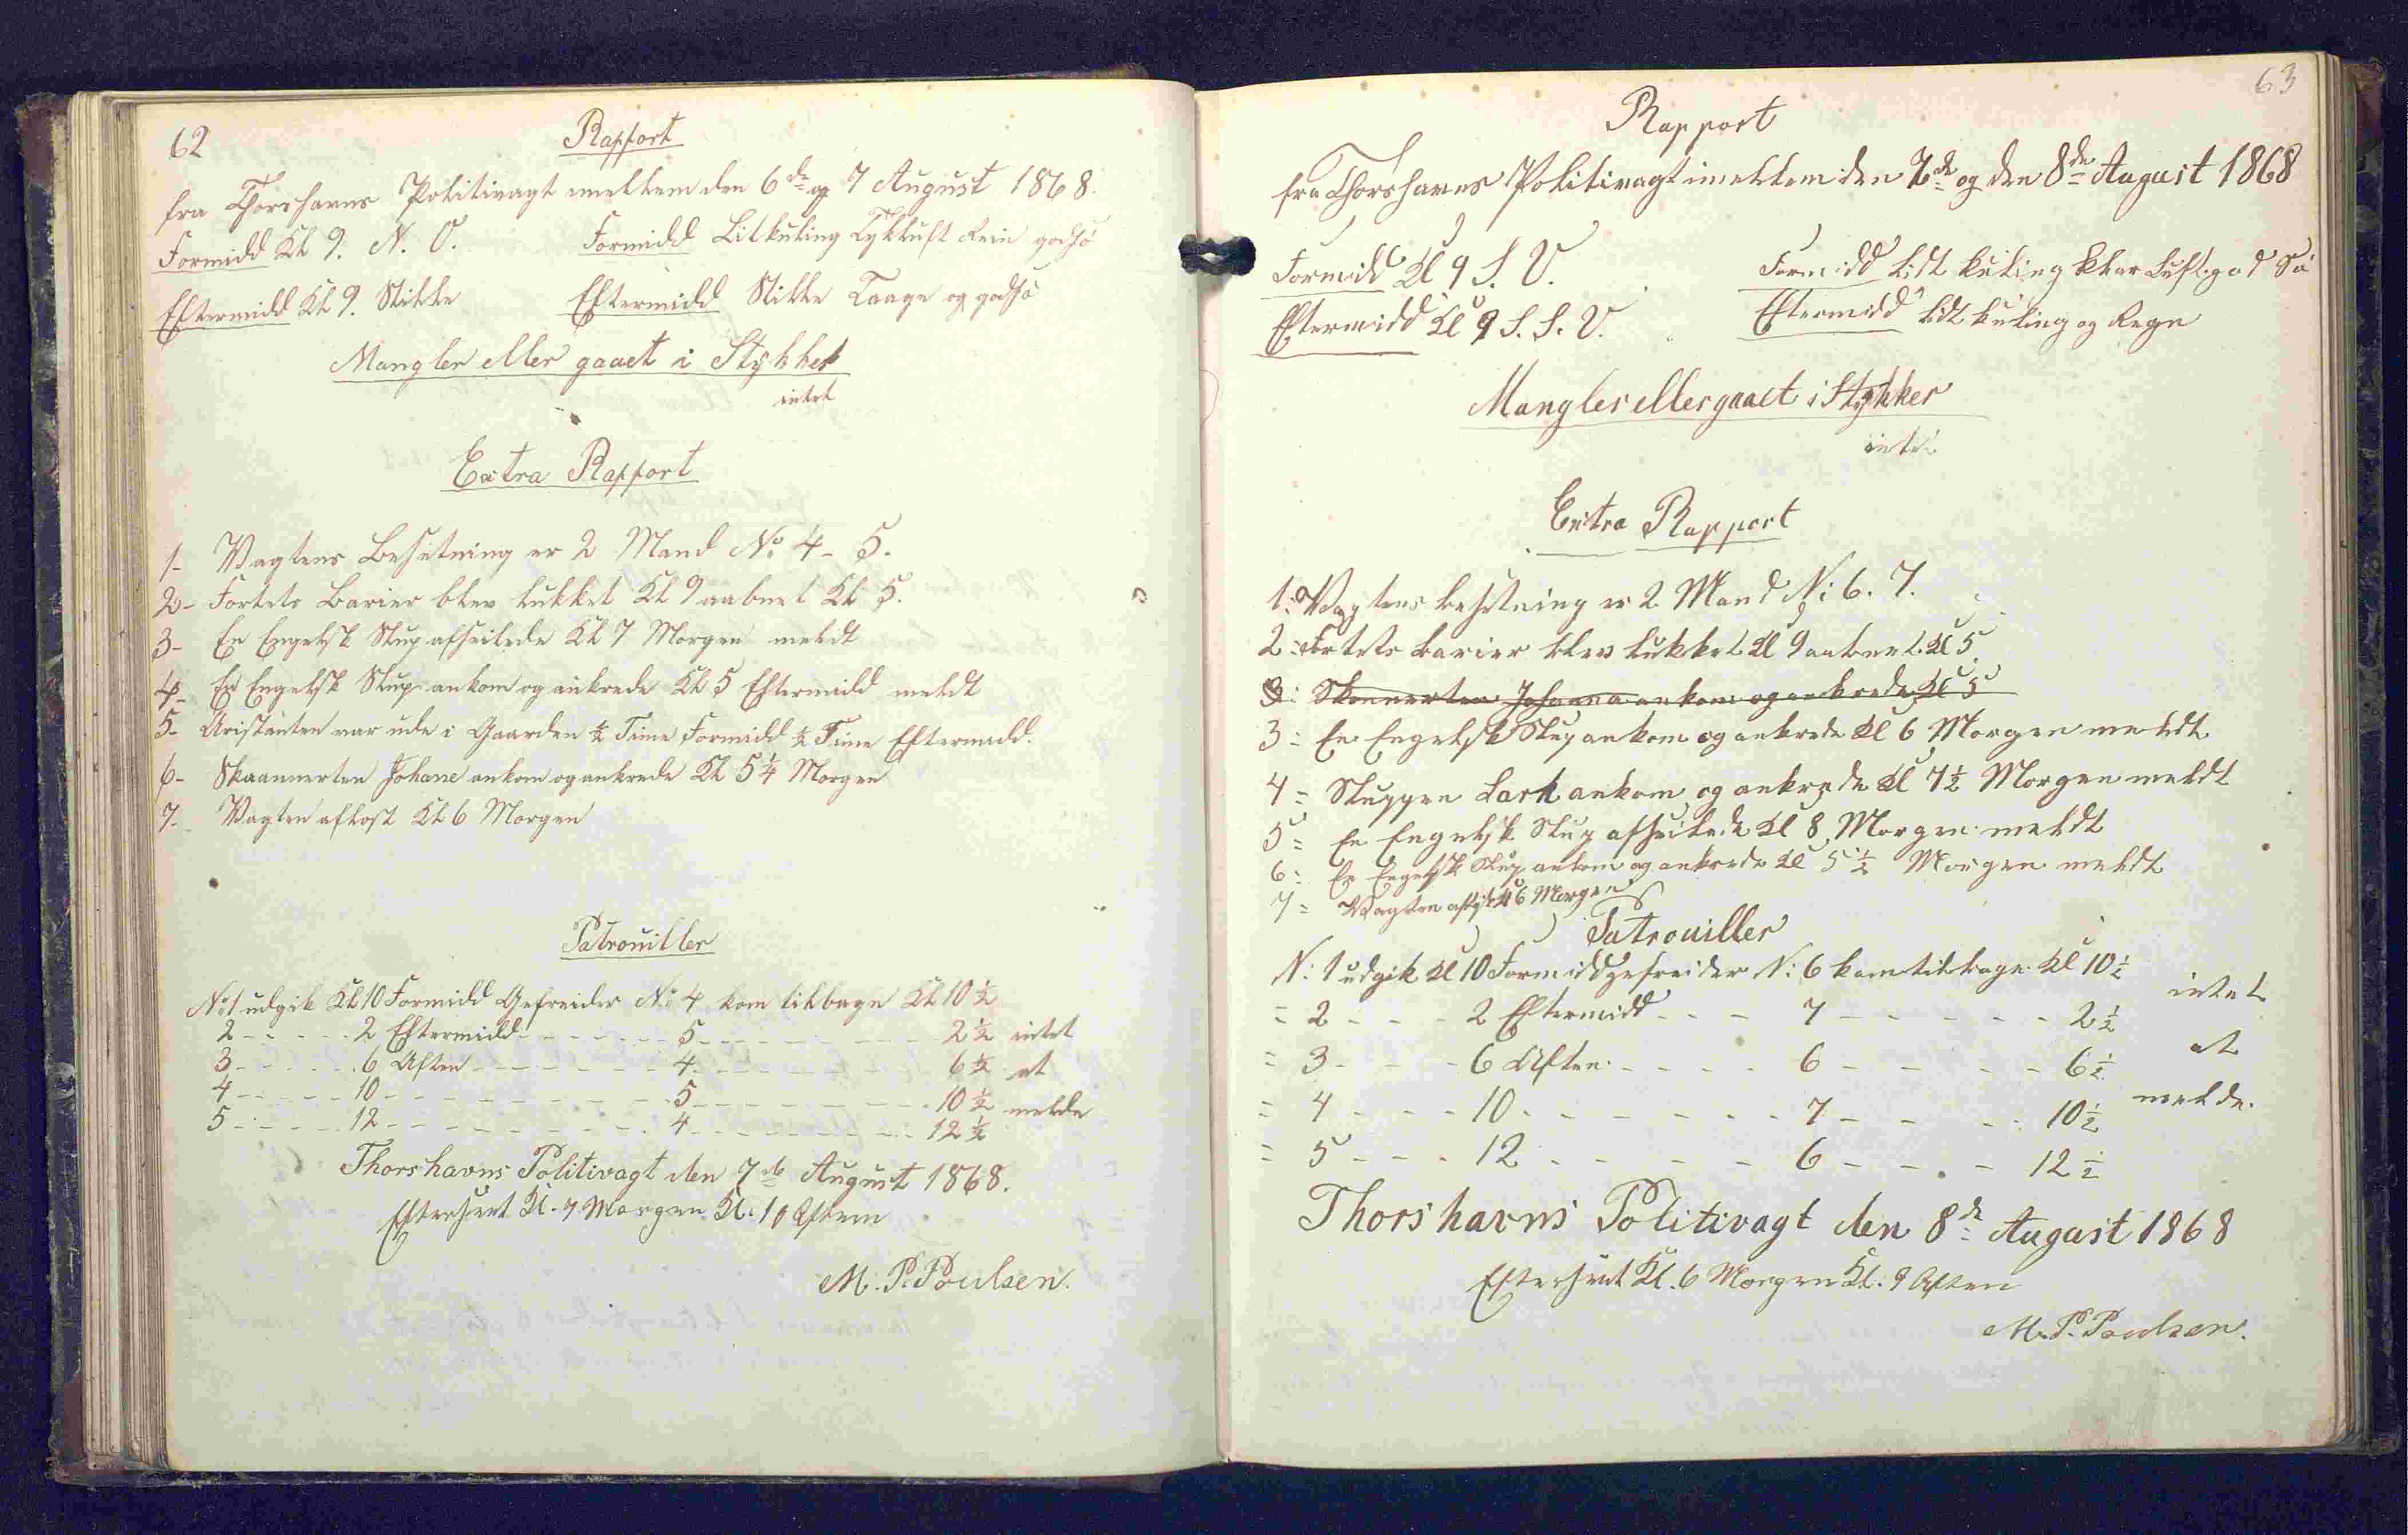 62
Rapport
fra Thorshavns Politivagt imellem den 6de og 7 August 1868.
Formidd Kl 9. N. O. Formidd Litkuling Tykluft Rein godsø
Eftermidd Kl 9. Stille Eftermidd Stille Taage og godsø
Mangler eller gaaet i Stykker
intet
Extra Rapport
1- Vagtens Besetning er 2 Mand No 4- 5.
2- Fortets Barier blev lukket Kl 9 aabnet Kl 5.
3- En Engelsk Slup afseilede Kl 7 Morgen meldt
4- En Engelsk Slup ankom og ankrede Kl 5 Eftermidd meldt
5- Aristanten var ude i Gaarden ½ Time Formidd ½ Time Eftermidd.
6- Skaannerten Johane ankom og ankrede Kl 5¼ Morgen
7- Vagten aflost Kl 6 Morgen
Patrouiller
No 1 udgik Kl 10 Formidd Gefreider No 4 kom tilbage Kl 10½
2 - - - - - 2 Eftermidd - - - - - - - 5 - - - - - - - - - 2½ intet
3 - - - - - 6 Aften - - - - - - - - - 4 - - - - - - - - - 6½ at
4 - - - - - 10 - - - - - - - - - - - 5 - - - - - - - - - 10½ melde
5 - - - - - 12 - - - - - - - - - - - 4 - - - - - - - - - 12½
Thorshavns Politivagt den 7de August 1868.
Efterseet Kl. 7 Morgen Kl. 10 Aften
M. P. Poulsen.
63
Rapport
fra Thorshavns Politivagt imellem den 7de og den 8de August 1868
Formidd Kl 9 S. V. Formidd lidt kuling klar Luft god Sø
Eftermidd Kl 9 S. S. V. Eftermidd lidt kuling og Regn
Mangler eller gaaet i Stykker
intet
Extra Rapport
1: Vagtens besetning er 2 Mand N: 6. 7.
2: Fortets barier blev lukket Kl 9 aabnet Kl 5
3: Skonnerten Johanna ankom og ankrede Kl 5
3: En Engelsk Slup ankom og ankrede Kl 6 Morgen meldt
4= Sluppen Lark ankom og ankrede Kl 7½ Morgen meldt
5= En Engelsk Slup afseilede Kl 8 Morgen meldt
6: En Engelsk Slup ankom og ankrede Kl 5½ Morgen meldt
7= Vagten afløst Kl 6 Morgen
Patrouiller
N: 1 udgik Kl 10 Formidd gefreider N: 6 kom tilbage Kl 10½ intet
= 2 - - - 2 Eftermidd - - - 7 - - - - - 2½
= 3 - - - 6 Aften - - - - 6 - - - - - 6½ at
= 4 - - - 10 - - - - - - 7 - - - - 10½ melde.
= 5 - - - 12 - - - - - 6 - - - - 12½
Thorshavns Politivagt den 8de August 1868
Efterseet Kl. 6 Morgen Kl. 9 Aften
M. P. Poulsen.